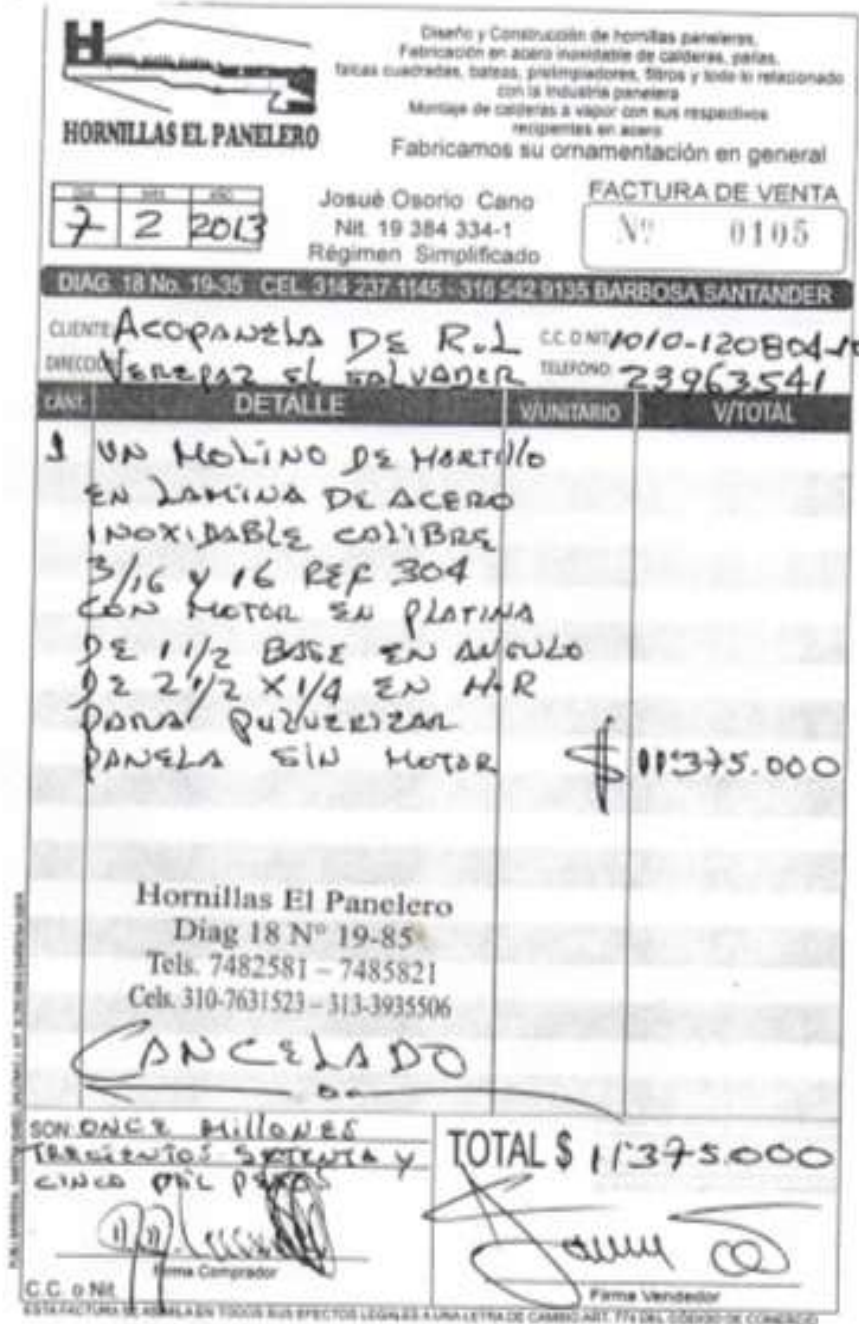 Diseño y Construcción de hornillas paneleras,
Fabricación en acero inoxidable de calderas, pailas,
falcas cuadradas, bateas, prelimpiadores, filtros y todo lo relacionado
con la industria panelera
Montaje de calderas a vapor con sus respectivos
recipientes en acero
Fabricamos su ornamentación en general
HORNILLAS EL PANELERO
DIA MES AÑO
7 2 2013
Josué Osorio Cano
Nit. 19 384 334-1
Régimen Simplificado
FACTURA DE VENTA
Nº 0105
DIAG. 18 No. 19-35 CEL. 314 237 1145 - 316 542 9135 BARBOSA SANTANDER
CLIENTE ACOPANELA DE R.L C.C. O NIT 1010-120804-
DIRECCIÓN VEREPAZ EL SALVADOR TELEFONO 23963541
CANT. DETALLE V/UNITARIO V/TOTAL
1 UN MOLINO DE MARTILLO
EN LAMINA DE ACERO
INOXIDABLE CALIBRE
3/16 Y 16 REF 304
CON MOTOR EN PLATINA
DE 1 1/2 BASE EN ANGULO
DE 2 1/2 X 1/4 EN H.R
PARA PULVERIZAR
PANELA SIN MOTOR $ 11'375.000
Hornillas El Panelero
Diag 18 Nº 19-85
Tels. 7482581 – 7485821
Cels. 310-7631523 – 313-3935506
CANCELADO
SON: ONCE MILLONES
TRECIENTOS SETENTA Y
CINCO MIL PESOS
TOTAL $ 11'375.000
Firma Comprador
C.C. o Nit.
Firma Vendedor
ESTA FACTURA SE ASIMILA EN TODOS SUS EFECTOS LEGALES A UNA LETRA DE CAMBIO ART. 774 DEL CÓDIGO DE COMERCIO